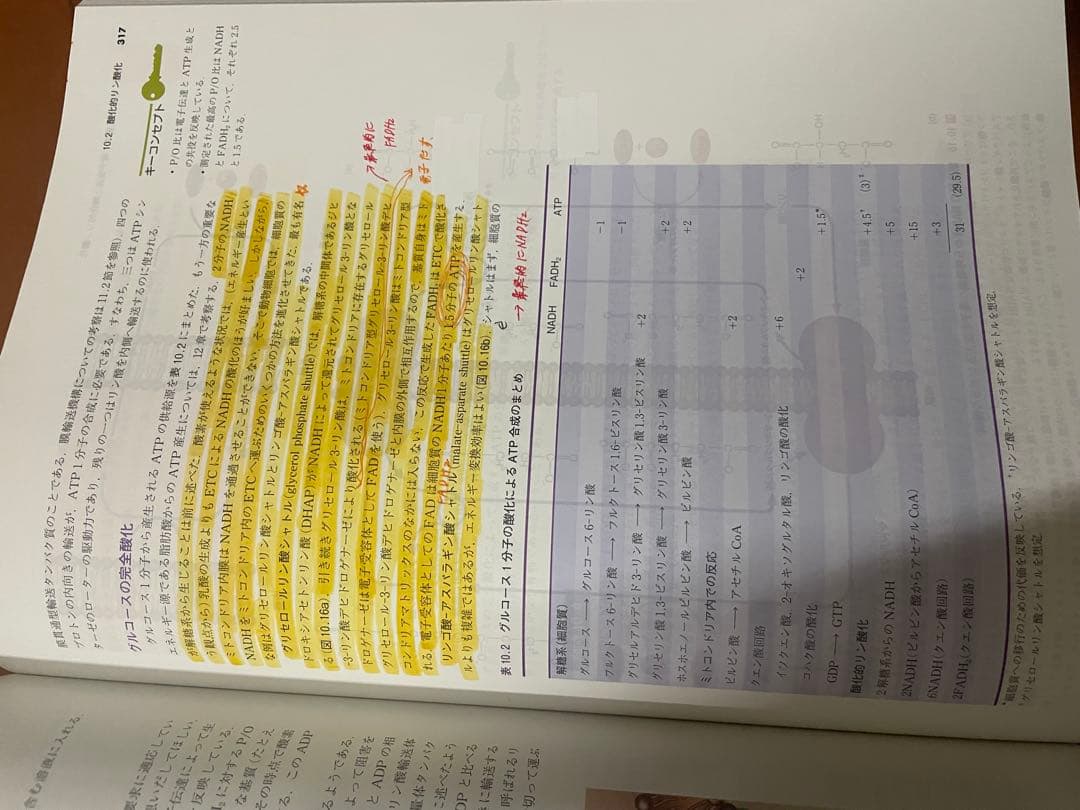 10.2 酸化的リン酸化 317
膜貫通型輸送タンパク質のことである。膜輸送機構についての考察は11.2節を参照)。四つの
プロトンの内向きの輸送が、ATP 1分子の合成に必要である。すなわち、三つはATPシン
ターゼのローターの駆動力であり、残りの一つはリン酸を内側へ輸送するのに使われる。
グルコースの完全酸化
グルコース1分子から産生されるATPの供給源を表10.2にまとめた。もう一方の重要な
エネルギー源である脂肪酸からのATP産生については、12章で考察する。2分子のNADH
が解糖系から生じることは前に述べた。酸素が使えるような状況では、(エネルギー産生とい
う観点から)乳酸の生成よりもETCによるNADHの酸化のほうが好ましい。しかしながら、
ミトコンドリア内膜はNADHを通過させることができない。そこで動物細胞では、細胞質の
NADHをミトコンドリア内のETCへ運ぶためのいくつかの方法を進化させてきた。最も有名
な例はグリセロールリン酸シャトルとリンゴ酸-アスパラギン酸シャトルである。
グリセロールリン酸シャトル(glycerol phosphate shuttle)では、解糖系の中間体であるジヒ
ドロキシアセトンリン酸(DHAP)がNADHによって還元されてグリセロール3-リン酸とな
る(図10.16a)。引き続きグリセロール3-リン酸は、ミトコンドリアに存在するグリセロール-
3-リン酸デヒドロゲナーゼにより酸化される(ミトコンドリア型グリセロール-3-リン酸デヒ
ドロゲナーゼは電子受容体としてFADを使う)。グリセロール3-リン酸はミトコンドリア型
グリセロール-3-リン酸デヒドロゲナーゼと内膜の外側で相互作用するので、基質自身はミト
コンドリアマトリックスのなかには入らない。この反応で生成したFADH₂はETCで酸化さ
れる。電子受容体としてのFADは細胞質のNADH 1分子あたり1.5分子のATPを産生する。
リンゴ酸-アスパラギン酸シャトル(malate-asparate shuttle)はグリセロールリン酸シャト
ルよりも複雑ではあるが、エネルギー変換効率はよい(図10.16b)。シャトルはまず、細胞質の
キーコンセプト
・P/O比は電子伝達とATP生成と
の共役を反映している。
・測定された最高のP/O比はNADH
とFADH₂について、それぞれ2.5
と1.5である。
→最終的に
FADH₂
電子だす、
→最終的にNADH₂
表10.2 グルコース1分子の酸化によるATP合成のまとめ
NADH FADH₂ ATP
解糖系(細胞質)
グルコース → グルコース6-リン酸 -1
フルクトース6-リン酸 → フルクトース1,6-ビスリン酸 -1
グリセルアルデヒド3-リン酸 → グリセリン酸1,3-ビスリン酸 +2
グリセリン酸1,3-ビスリン酸 → グリセリン酸3-リン酸 +2
ホスホエノールピルビン酸 → ピルビン酸 +2
ミトコンドリア内での反応
ピルビン酸 → アセチルCoA +2
クエン酸回路
イソクエン酸、2-オキソグルタル酸、リンゴ酸の酸化 +6
コハク酸の酸化 +2
GDP → GTP +1.5*
酸化的リン酸化
2解糖系からのNADH +4.5† (3)‡
2NADH(ピルビン酸からアセチルCoA) +5
6NADH(クエン酸回路) +15
2FADH₂(クエン酸回路) +3
31 (29.5)
*細胞質への移行のための代価を反映している。 †リンゴ酸-アスパラギン酸シャトルを想定.
‡グリセロールリン酸シャトルを想定.